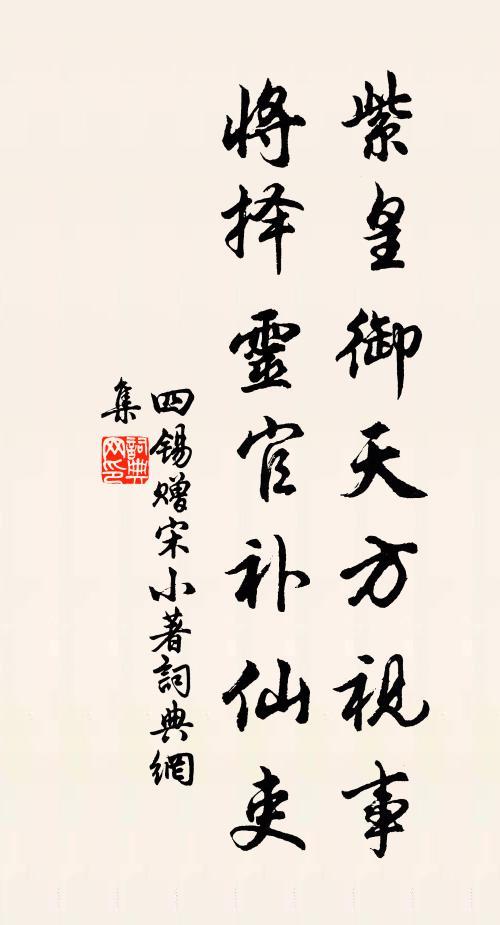 紫皇御天方视事
将择靈官补仙吏
四锡赠宋小著詞典網
集
詞典网印